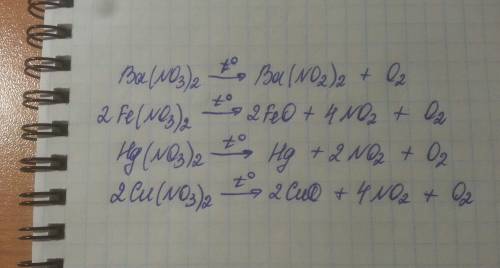 Ba(NO3)2 t° → Ba(NO2)2 + O2
2Fe(NO3)2 t° → 2FeO + 4NO2 + O2
Hg(NO3)2 t° → Hg + 2NO2 + O2
2Cu(NO3)2 t° → 2CuO + 4NO2 + O2